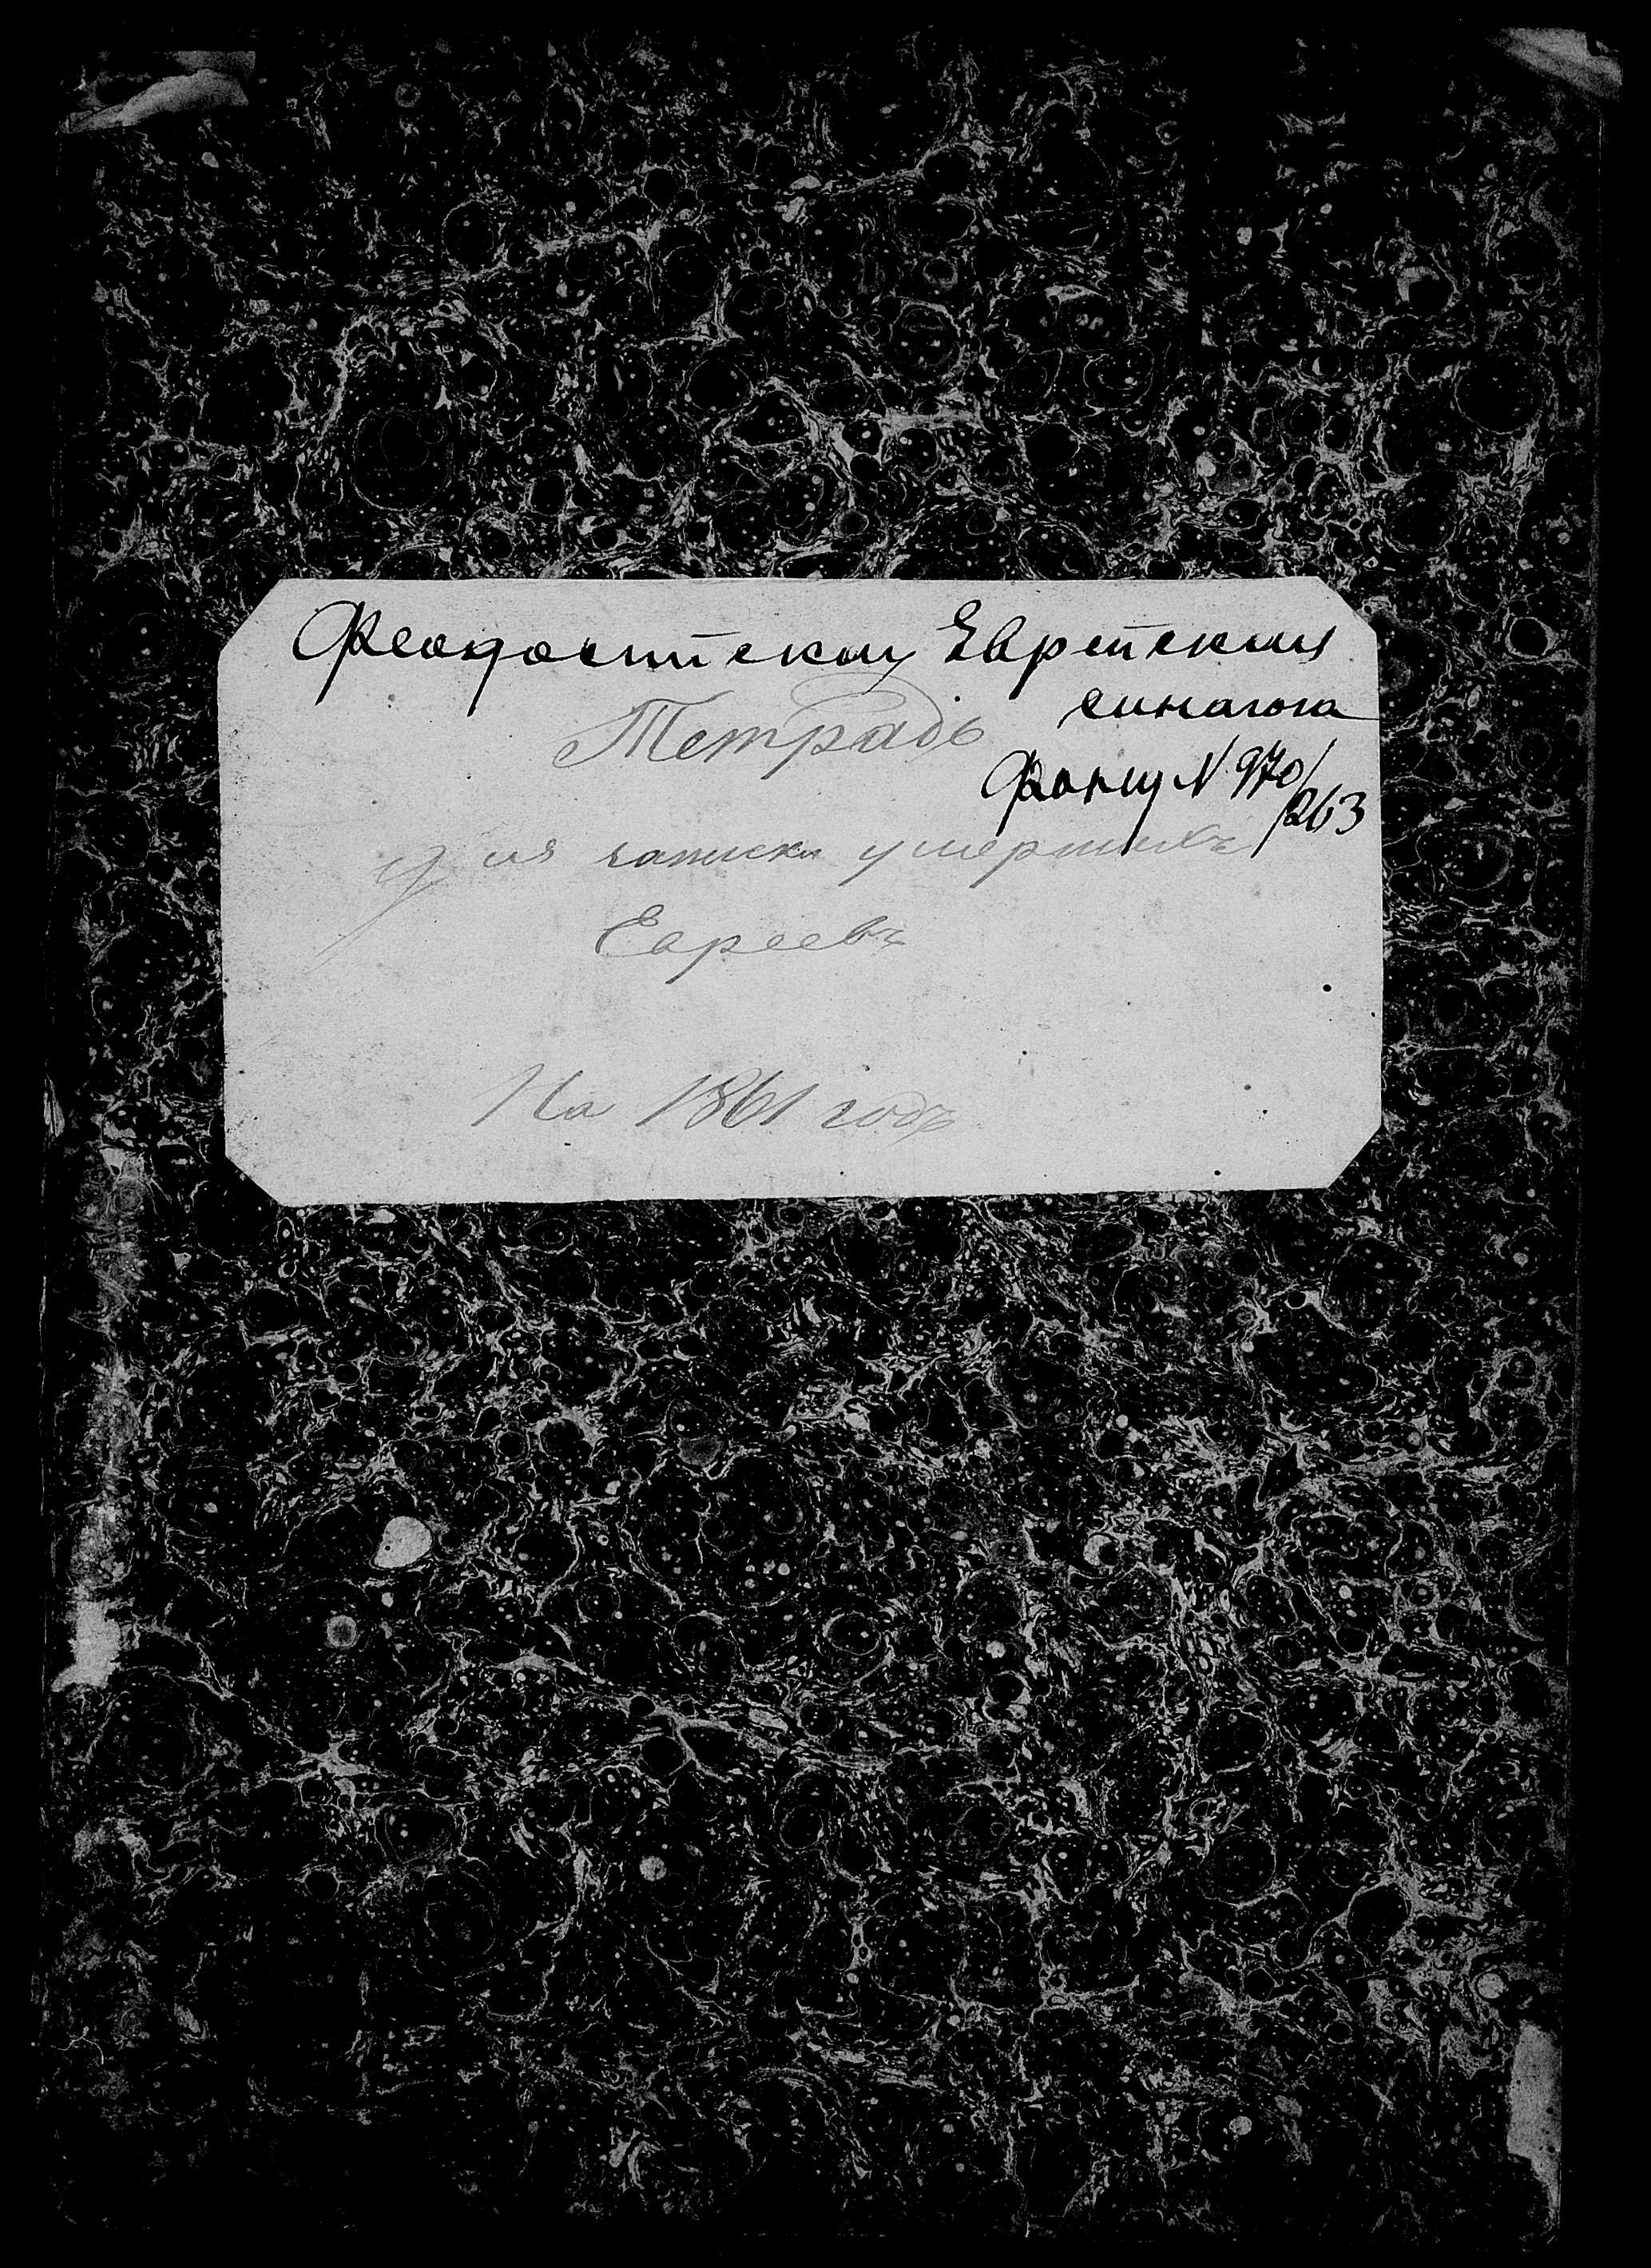 Феодосийская Еврейская
синагога
Тетрадь
Фонд N 970/263
для записки умершихъ
Евреевъ
На 1861 годъ